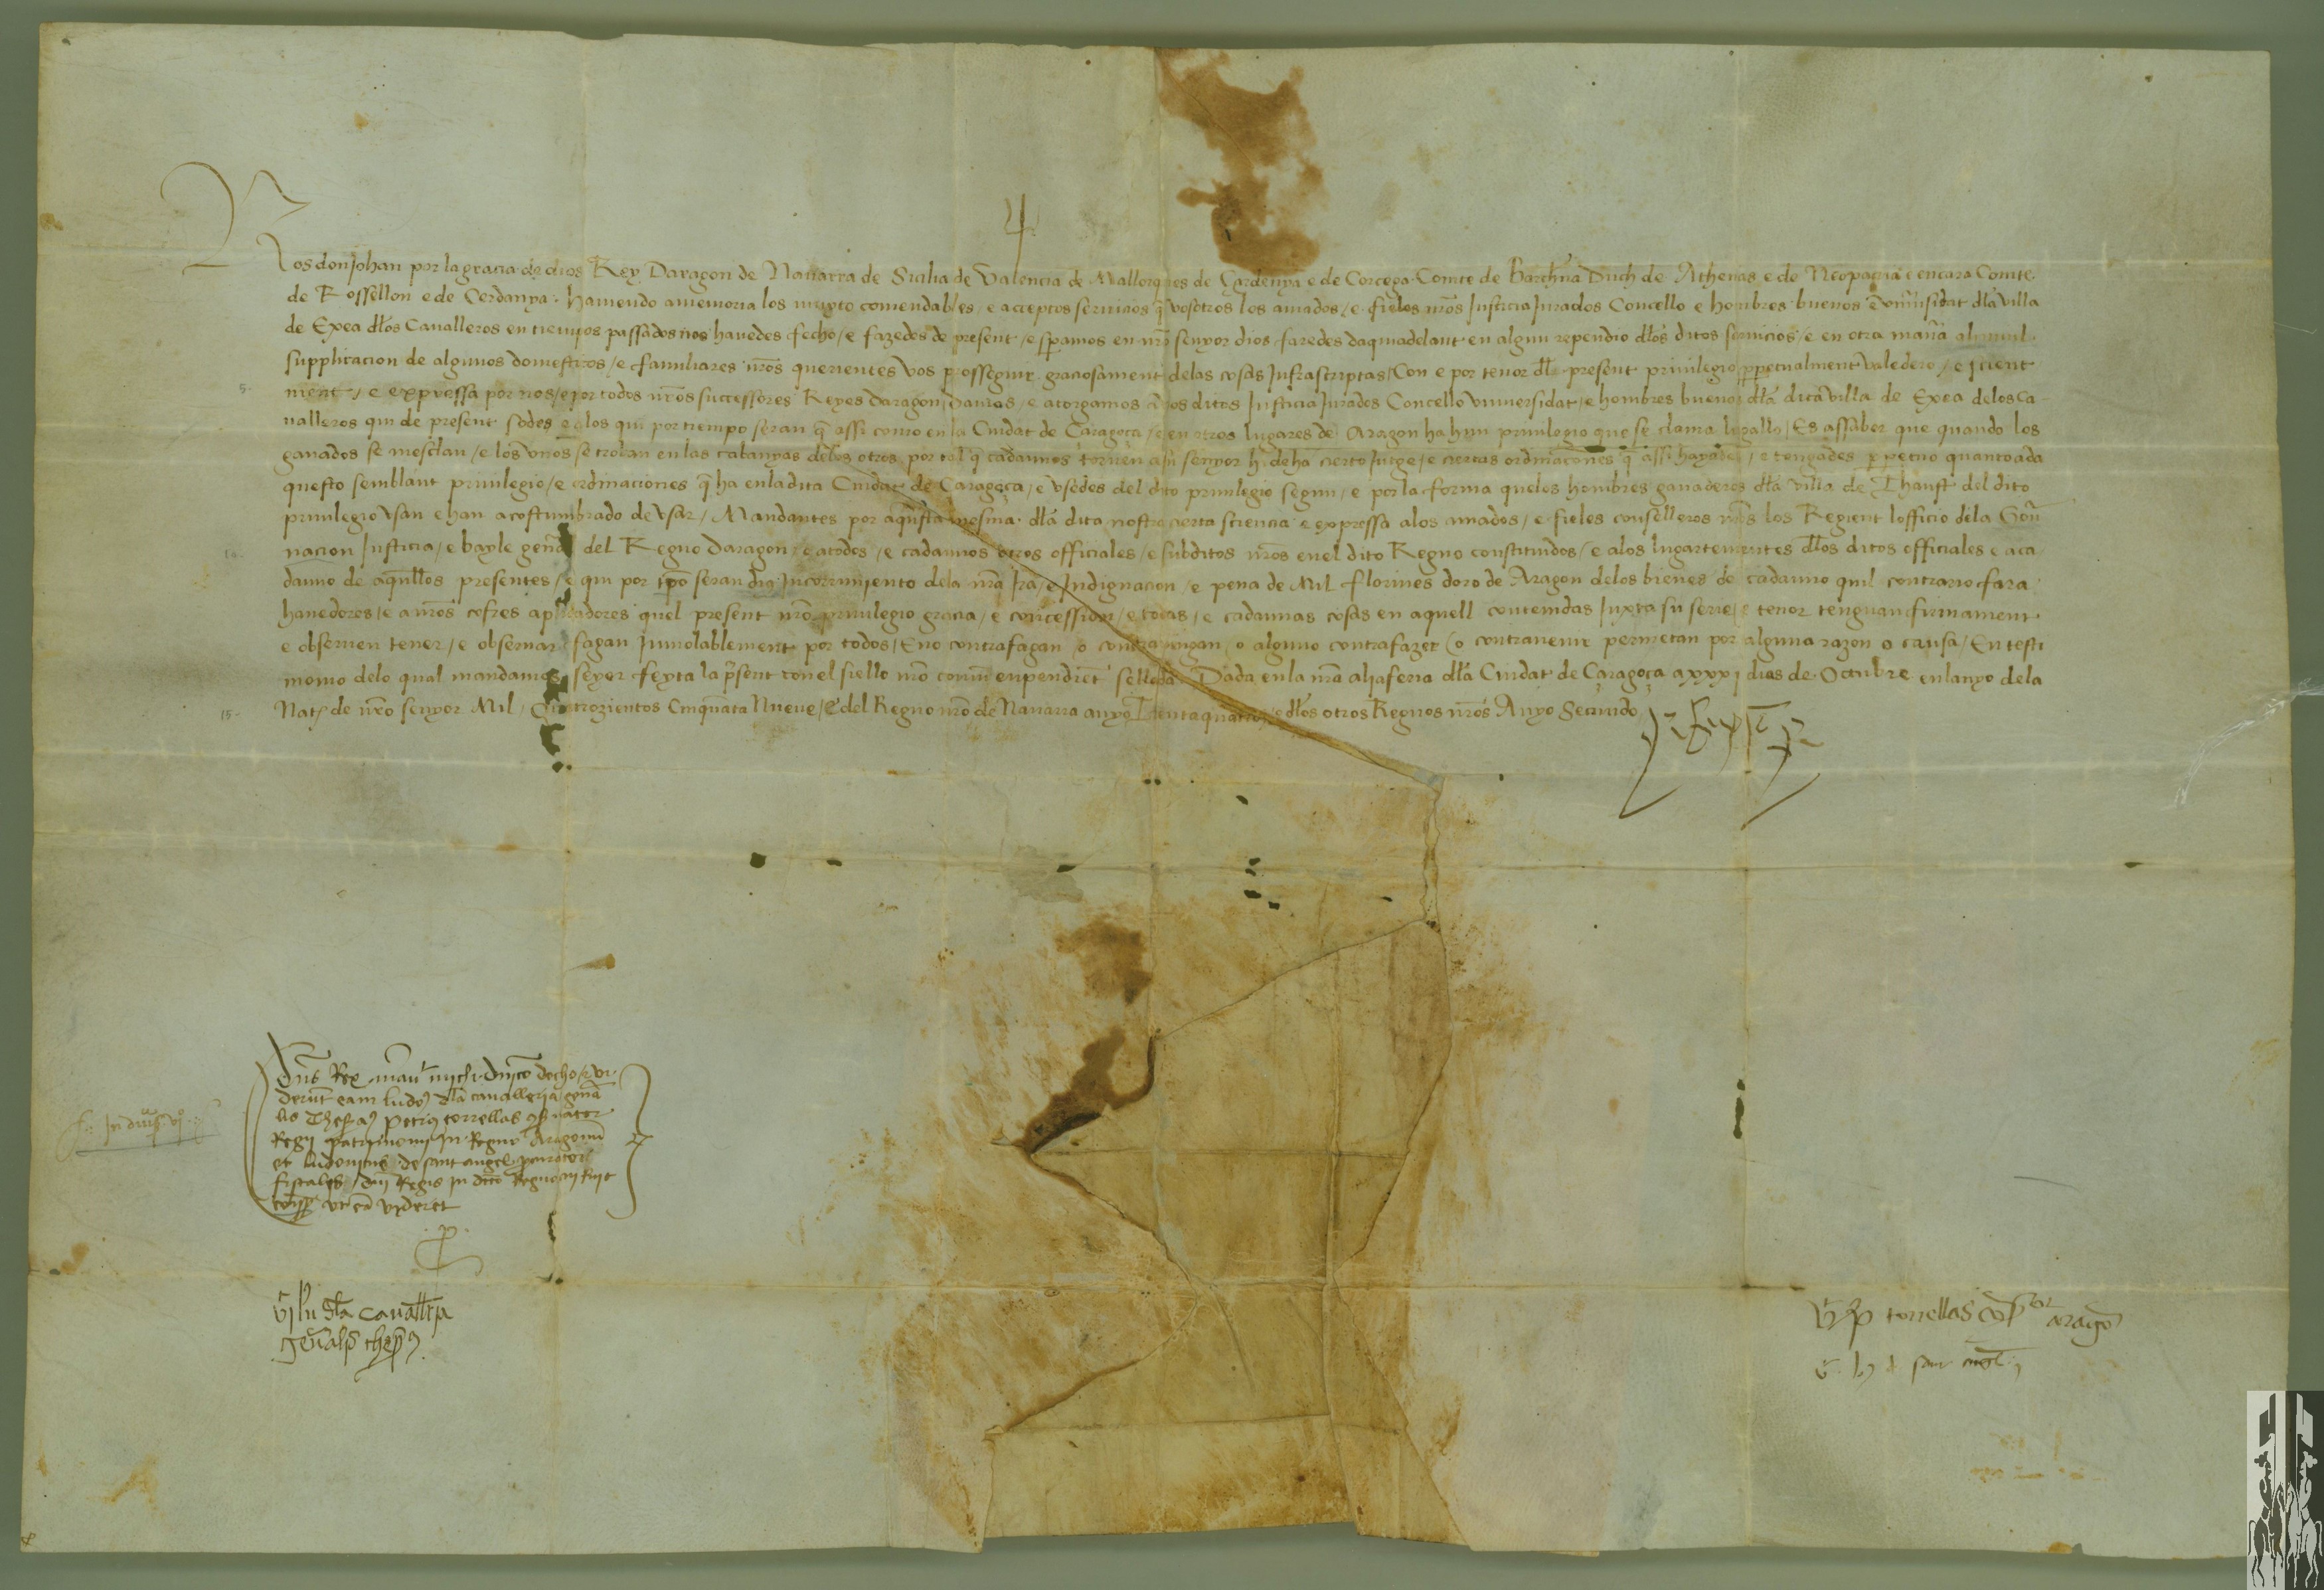 4
Nos don Johan por la gracia de dios Rey Daragon de Nauarra de Sicilia de Valencia de Mallorques de Cerdenya e de Corcega Comte de Barchna Duch de Athenas e de Neopatria e encara Comte
de Rossellon e de Cerdanya. Hauiendo a memoria los muyto comendables / e acceptos seruicios q̄ vosotros los amados / e fieles nr̄os Justicia Jurados Concello e hombres buenos e vniuersidat dla villa
de Exea dlos Caualleros en tiempos passados nos hauedes fecho / e fazedes de present / e speramos en nr̄o senyor dios faredes daqui adelant en algun rependio dlos ditos seruicios / e en otra man̄a a humil
supplicacion de algunos domesticos / e familiares nr̄os querientes vos prosseguir graciosament delas cosas Infrascriptas / Con e por tenor dl present priuilegio perpetualment valedero / e scient
5- ment / e expressa por nos / e por todos nr̄os successores Reyes Daragon damos / e atorgamos a vos ditos Justicia Jurados Concello vniuersidat / e hombres buenos dla dita villa de Exea delos Ca
ualleros qui de present sodes e a los qui por tiempo seran q̄ assi como en la Ciudat de Caragoça / e en otros lugares de Aragon ha hun priuilegio que se clama ligallo / Es assaber que quando los
ganados se mesclan / e los vnos se troban en las cabanyas delos otros por tal q̄ cadaunos tornen a su senyor h. de ha cierto Jutge / e ciertas ordinaciones q̄ assi hayades / e tengades perpetuo quanto ada
questo semblant priuilegio / e ordinaciones q̄ ha en la dita Ciudat de Caragoça / e vsedes del dito priuilegio segun / e por la forma quelos hombres ganaderos dla villa de Thaust del dito
priuilegio vsan e han acostumbrado de vsar / Mandantes por aquesta mesma dla dita nostra cierta sciencia e expressa a los amados / e fieles conselleros nr̄os los Regient lofficio dela Gou
10- nacion Justicia / e bayle gen̄al del Regno Daragon / e a todos / e cadaunos otros officiales / e subditos nr̄os en el dito Regno constituidos / e a los lugartenientes dlos ditos officiales e a ca
dauno de aquellos presentes / e qui por tpo seran dius Incorrimiento dela nr̄a Ira / e Indignacion / e pena de Mil florines doro de Aragon delos bienes de cadauno quil contrario fara
hauedores / e a nr̄os cofres aplicadores quel present nr̄o priuilegio gracia / e concession / e todas / e cadaunas cosas en aquell contenidas Juxta su serie / e tenor tenguan firmament
e obseruen tener / e obseruar fagan Inuiolablement por todos / E no contrafagan o contrauengan o alguno contrafazer (o contrauenir permetan por alguna razon o causa / En testi
monio delo qual mandamos seyer feyta la p̄sent con el siello nr̄o comun en pendient sellada. Dada en la nr̄a aljaferia dla Ciudat de Caragoça a xxxj dias de Octubre en lanyo dela
15- Nat. de nr̄o senyor Mil Quatrozientos Cinquanta Nueue / e del Regno nr̄o de Nauarra anyo Trenta quatro / e dlos otros Regnos nr̄os Anyo Segundo
Dn̄s Rex man̄t michi Dn̄ico Decho / et vi
derūt eam ludo. dla cauallerja gen̄a
lis Thesr. Petrus torrellas 9s̄uator
Regij patrimonij in Regno Aragonū
et ludouicus de sant angel procurator
fiscalis dn̄i Regis in dc̄o Regno
ut eā viderēt
P
In diu̅s. vjº
vj lu dla cauallrja
gen̄alis thes.
v. p torrellas 9s̄tor aragō
v. l. d sant angel